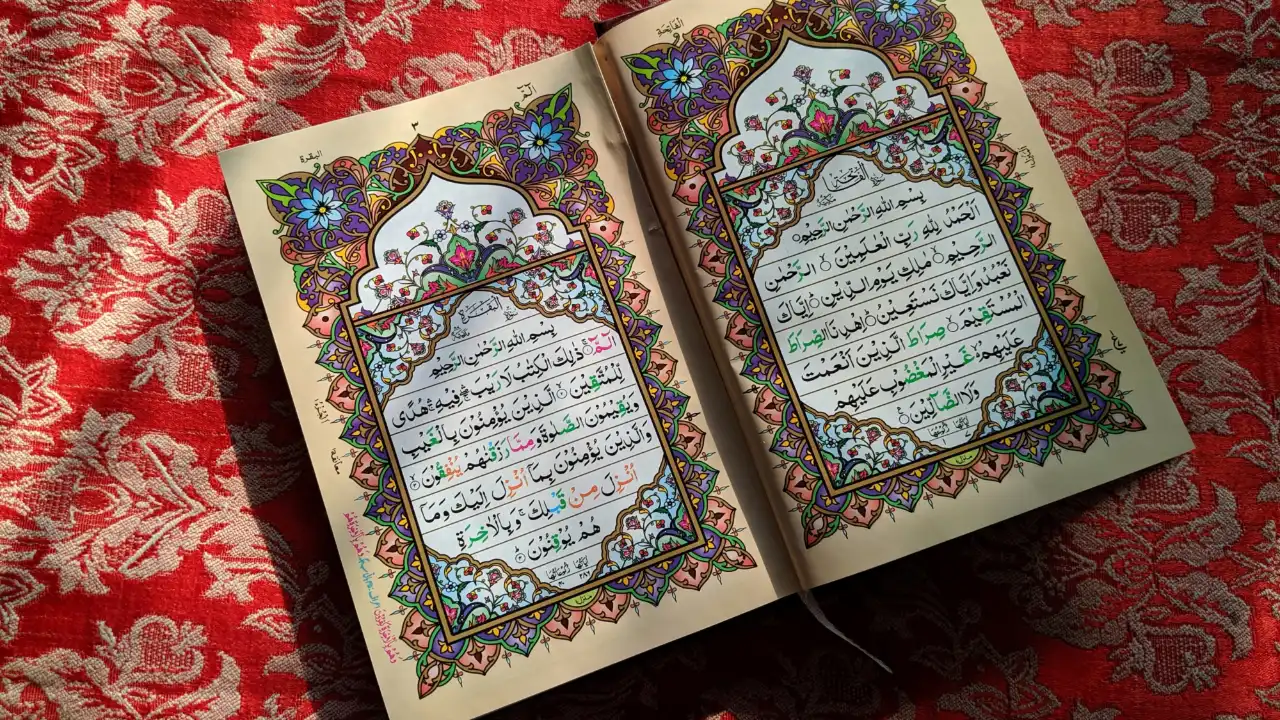 الفاتحة
الفاتحة
بِسْمِ اللهِ الرَّحْمٰنِ الرَّحِيْمِ
اَلْحَمْدُ لِلّٰهِ رَبِّ الْعٰلَمِيْنَ ۙ الرَّحْمٰنِ
الرَّحِيْمِ ۙ مٰلِكِ يَوْمِ الدِّيْنِ ؕ اِيَّاكَ
نَعْبُدُ وَاِيَّاكَ نَسْتَعِيْنُ ؕ اِهْدِنَا الصِّرَاطَ
الْمُسْتَقِيْمَ ۙ صِرَاطَ الَّذِيْنَ اَنْعَمْتَ
عَلَيْهِمْ ۙ غَيْرِ الْمَغْضُوْبِ عَلَيْهِمْ
وَلَا الضَّآلِّيْنَ
البقرة
٣
الٓمّٓ
البقرة
بِسْمِ اللهِ الرَّحْمٰنِ الرَّحِيْمِ
الٓمّٓ ۚ ذٰلِكَ الْكِتٰبُ لَا رَيْبَ ۛ فِيْهِ ۛ هُدًى
لِّلْمُتَّقِيْنَ ۙ الَّذِيْنَ يُؤْمِنُوْنَ بِالْغَيْبِ
وَيُقِيْمُوْنَ الصَّلٰوةَ وَمِمَّا رَزَقْنٰهُمْ يُنْفِقُوْنَ ۙ
وَالَّذِيْنَ يُؤْمِنُوْنَ بِمَآ اُنْزِلَ اِلَيْكَ وَمَآ
اُنْزِلَ مِنْ قَبْلِكَ ۚ وَبِالْاٰخِرَةِ
هُمْ يُوْقِنُوْنَ